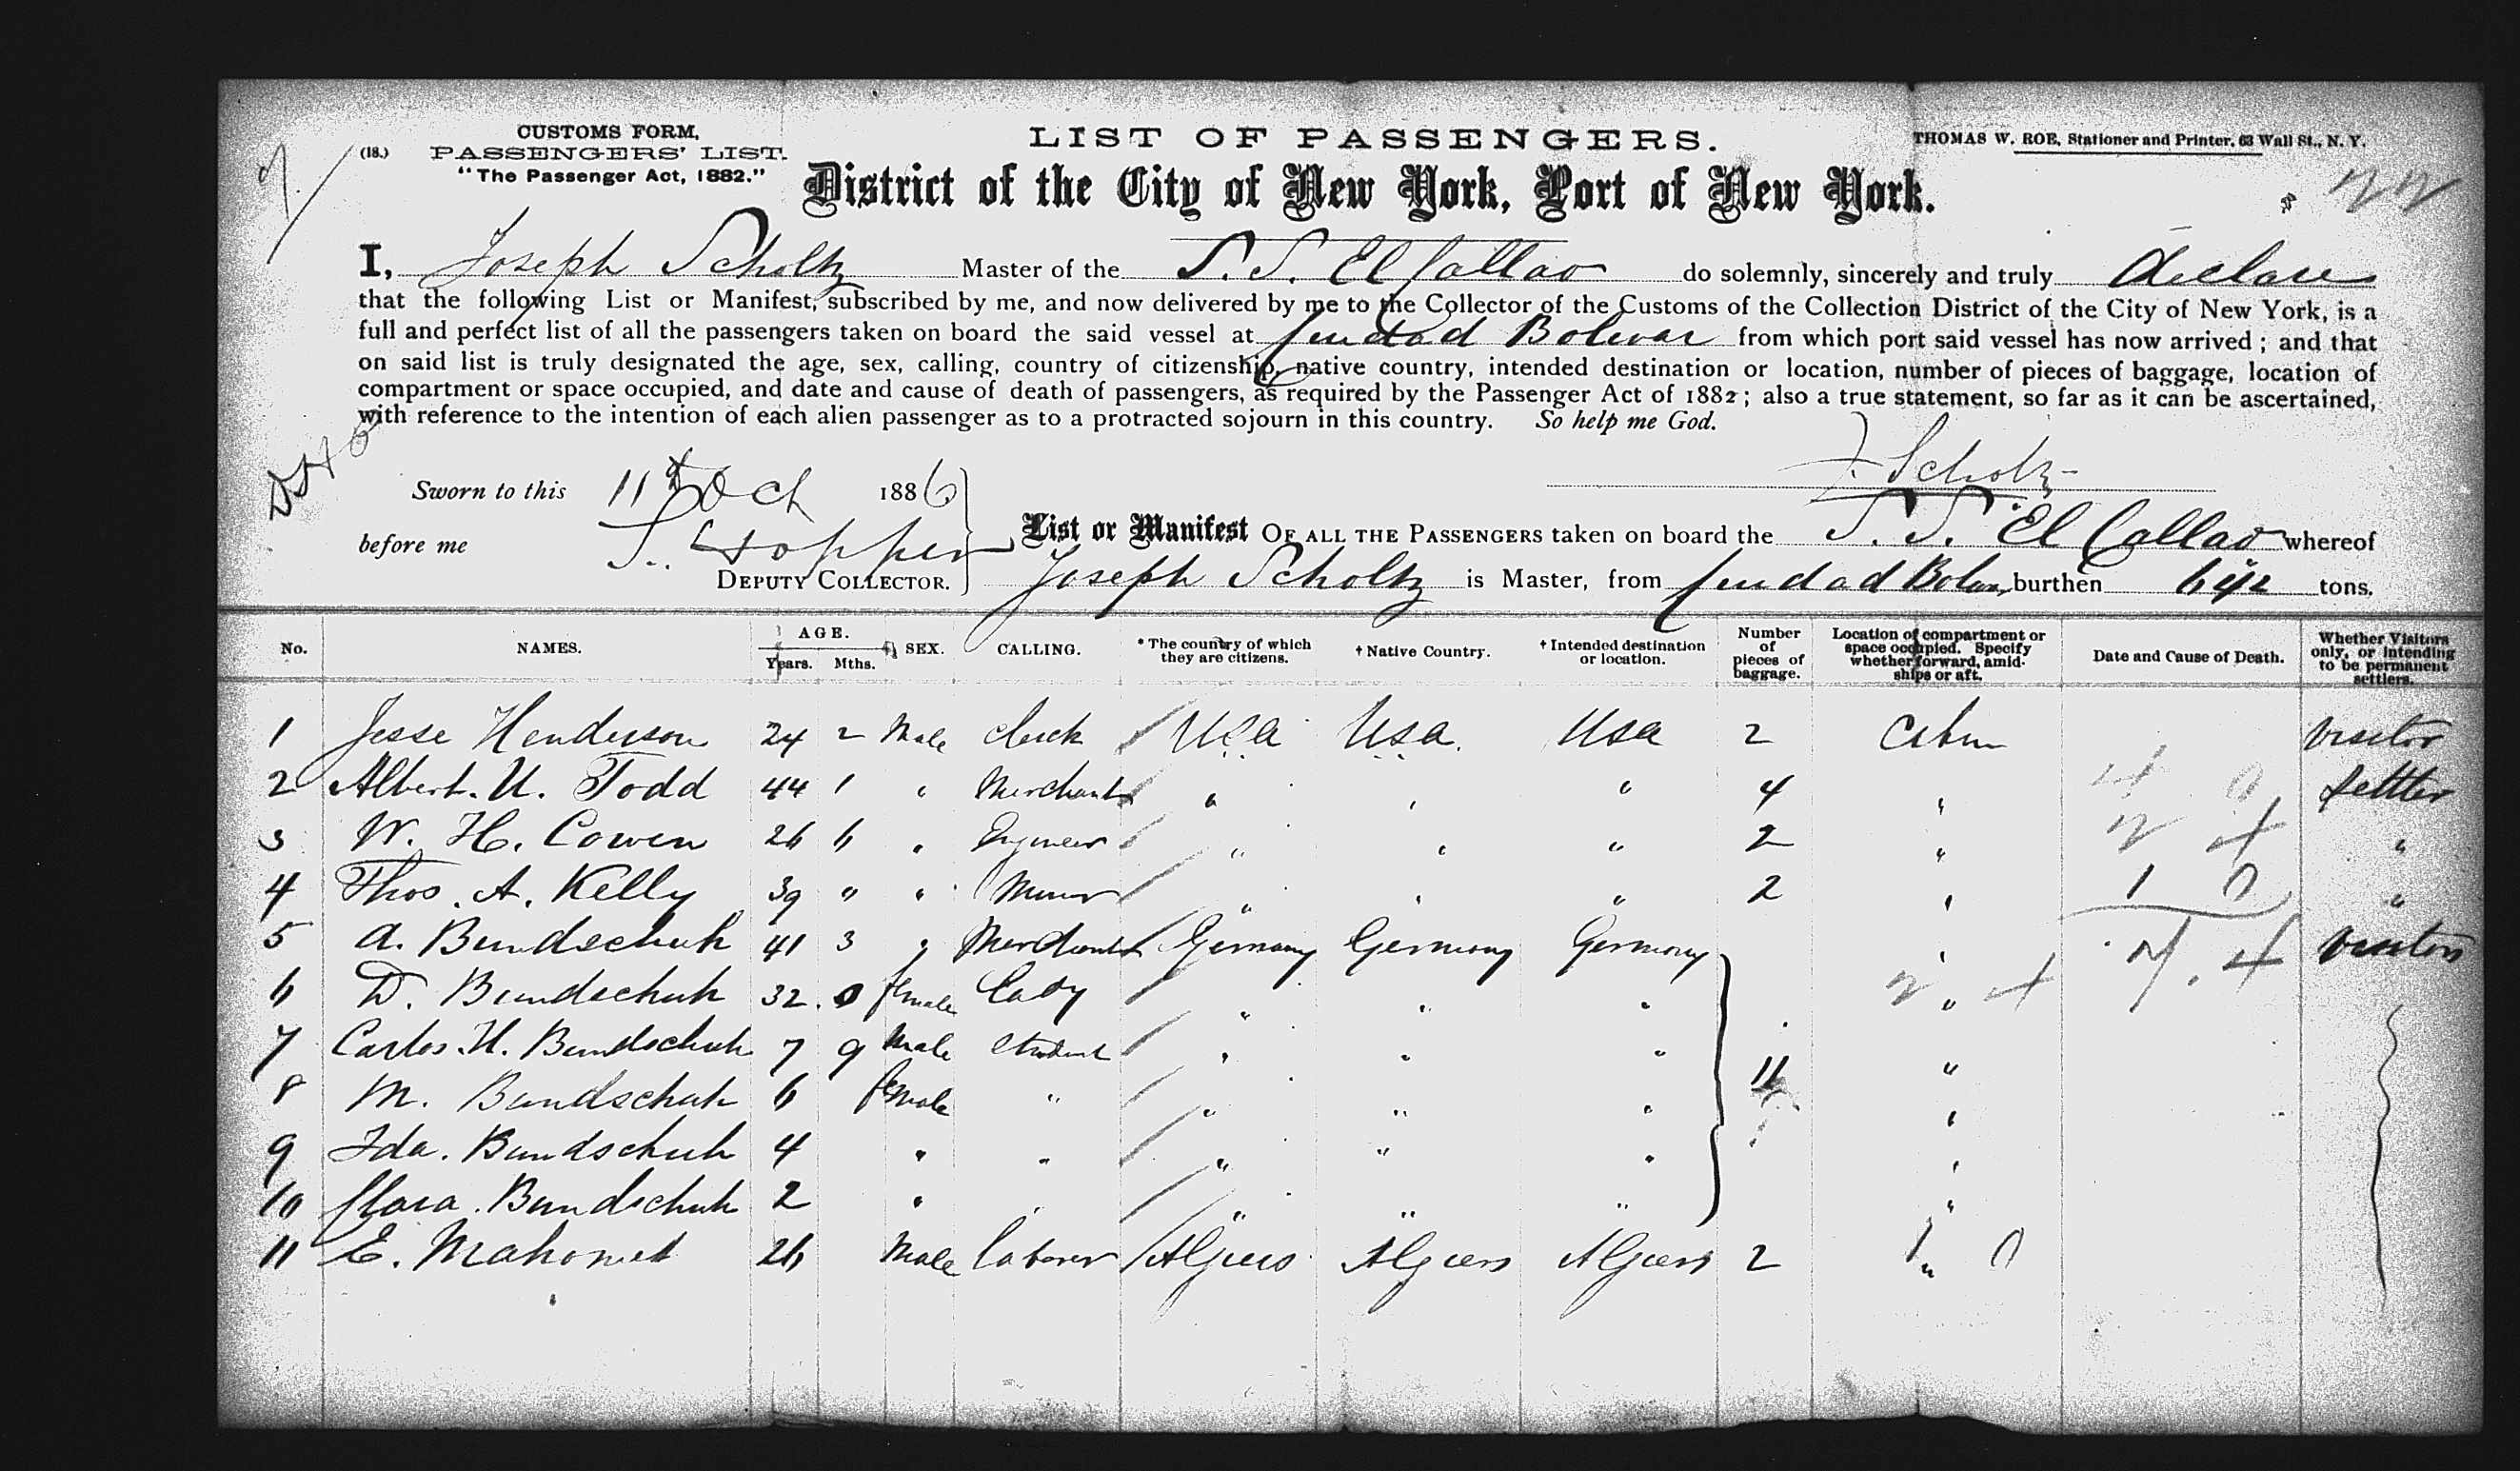 CUSTOMS FORM,
(18.) PASSENGERS' LIST.
"The Passenger Act, 1882."
LIST OF PASSENGERS.
THOMAS W. ROE, Stationer and Printer, 63 Wall St., N. Y.
District of the City of New York, Port of New York.
I, Joseph Scholtz Master of the S. S. El Callao do solemnly, sincerely and truly declare
that the following List or Manifest, subscribed by me, and now delivered by me to the Collector of the Customs of the Collection District of the City of New York, is a
full and perfect list of all the passengers taken on board the said vessel at Ciudad Bolivar from which port said vessel has now arrived; and that
on said list is truly designated the age, sex, calling, country of citizenship, native country, intended destination or location, number of pieces of baggage, location of
compartment or space occupied, and date and cause of death of passengers, as required by the Passenger Act of 1882; also a true statement, so far as it can be ascertained,
with reference to the intention of each alien passenger as to a protracted sojourn in this country. So help me God.
J. Scholtz
Sworn to this 11th Oct 1886
before me Hopper
DEPUTY COLLECTOR.
List or Manifest OF ALL THE PASSENGERS taken on board the S. S. El Callao whereof
Joseph Scholtz is Master, from Ciudad Bolivar burthen 692 tons.
No. NAMES. AGE. Years. Mths. SEX. CALLING. * The country of which they are citizens. † Native Country. † Intended destination or location. Number of pieces of baggage. Location of compartment or space occupied. Specify whether forward, amidships or aft. Date and Cause of Death. Whether Visitors only, or intending to be permanent settlers.
1 Jesse Henderson 24 2 Male clerk USA USA. USA 2 Cabin visitor
2 Albert. U. Todd 44 1 " Merchant " " " 4 " settler
3 W. H. Cowen 26 6 " Engineer " " " 2 " "
4 Thos. A. Kelly 39 " " Miner " " " 2 " "
5 A. Bundschuh 41 3 " Merchant Germany Germany Germany " visitors
6 D. Bundschuh 32. 0 female Lady " " " "
7 Carlos. H. Bundschuh 7 9 Male Student " " " 11 "
8 M. Bundschuh 6 female " " " " "
9 Ida. Bundschuh 4 " " " " " "
10 Clara. Bundschuh 2 " " " " " "
11 E. Mahomet 26 Male laborer Algiers Algiers Algiers 2 "